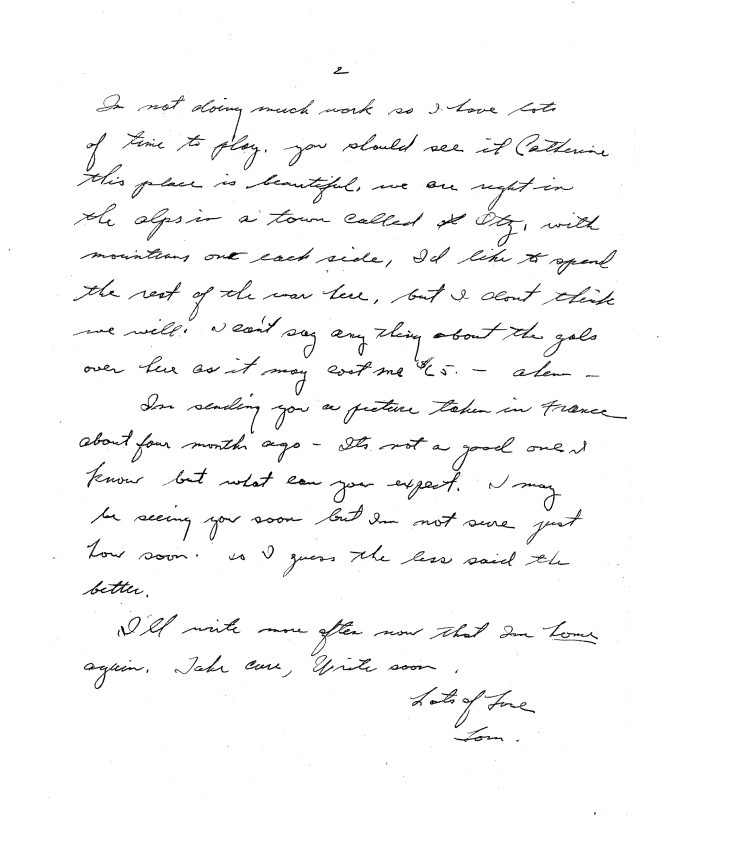 2
Im not doing much work so I have lots
of time to play. you should see it Catherine
this place is beautiful. we are right in
the alps in a town called Otz, with
mountians on each side, I'd like to spend
the rest of the war here, but I dont think
we will. I can't say any thing about the gals
over here as it may cost me $65. - ahem -
Im sending you a picture taken in France
about four months ago - Its not a good one I
know but what can you expect. I may
be seeing you soon but Im not sure just
how soon. so I guess the less said the
better.
I'll write more often now that Im home
again. Take care, Write soon.
Lots of Love
Tom.